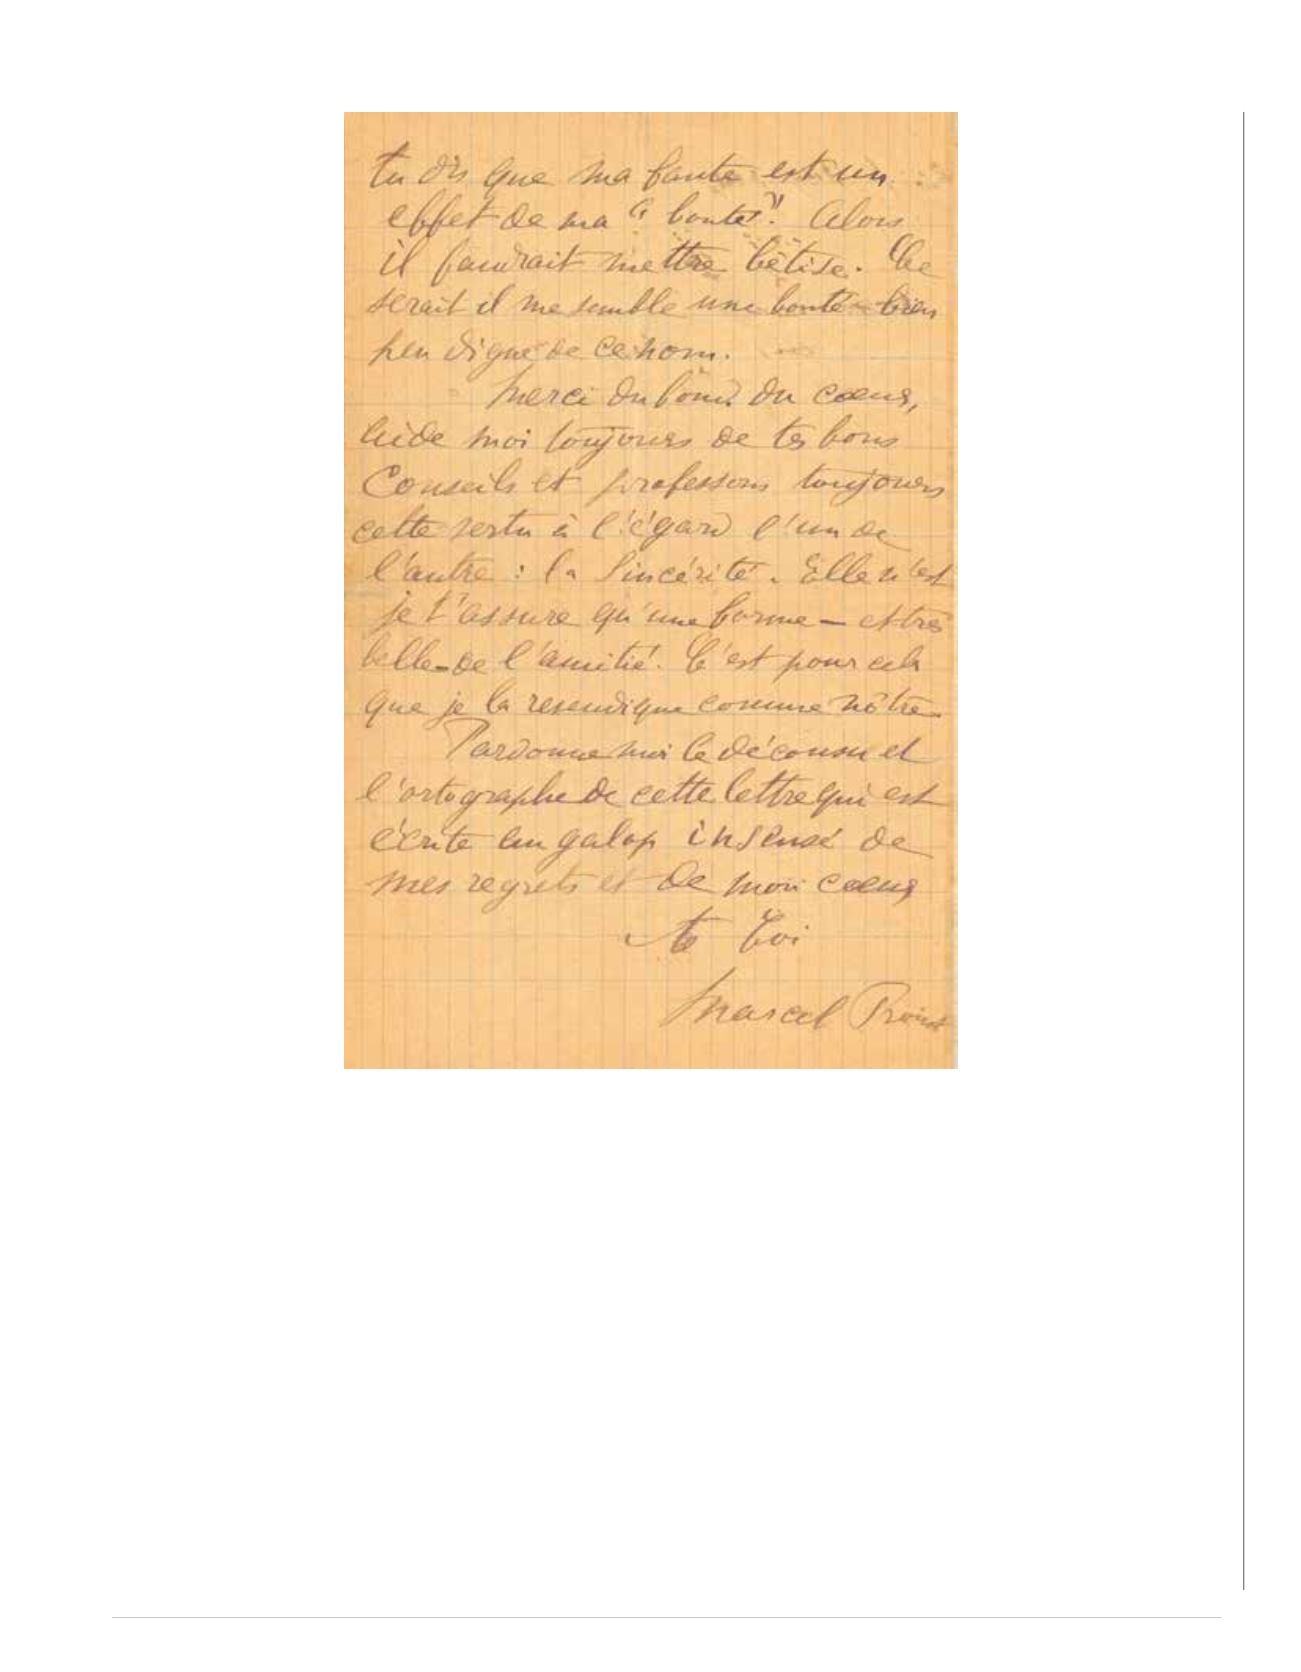 tu dis que ma faute est un
effet de ma "bonté". Alors
il faudrait mettre bêtise. Ce
serait il me semble une bonté bien
peu digne de ce nom.
Merci du fond du coeur,
Aide moi toujours de tes bons
Conseils et professons toujours
cette vertu à l'égard l'un de
l'autre : la Sincérité. Elle n'est
je t'assure qu'une forme – et très
belle – de l'amitié. C'est pour cela
que je la revendique comme nôtre
Pardonne moi le décousu et
l'ortographe de cette lettre qui est
écrite au galop insensé de
mes regrets et de mon coeur
toi
Marcel Proust